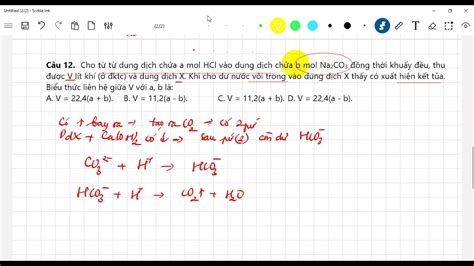 Untitled (2/2) - Scribble Ink
(2/2)
Câu 12. Cho từ từ dung dịch chứa a mol HCl vào dung dịch chứa b mol Na₂CO₃ đồng thời khuấy đều, thu
được V lít khí (ở đktc) và dung dịch X. Khi cho dư nước vôi trong vào dung dịch X thấy có xuất hiện kết tủa.
Biểu thức liên hệ giữa V với a, b là:
A. V = 22,4(a + b). B. V = 11,2(a - b). C. V = 11,2(a + b). D. V = 22,4(a - b).
Có ↑ bay ra → tạo ra CO₂ → có 2 pứ
Pdd X + Ca(OH)₂ có ↓ → sau pứ (2) còn dư HCO₃⁻
CO₃²⁻ + H⁺ → HCO₃⁻
HCO₃⁻ + H⁺ → CO₂↑ + H₂O